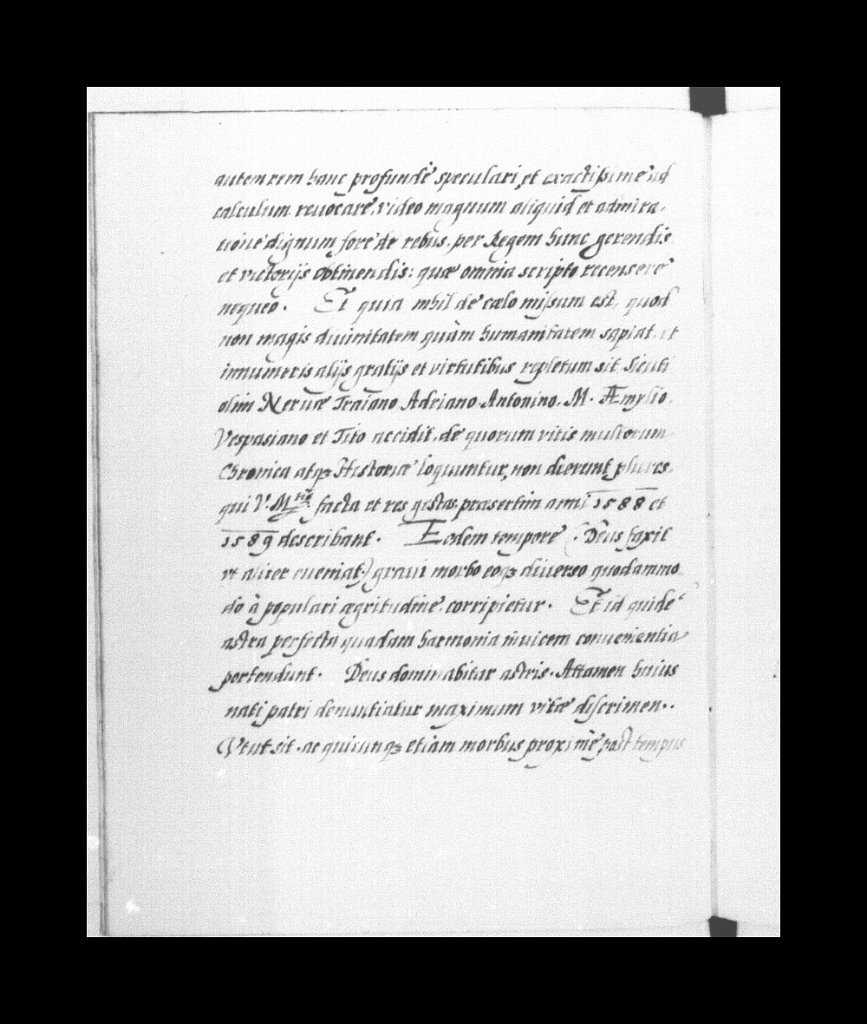 autem rem hanc profundè speculari, et exactissimè ad
calculum reuocare, video magnum aliquid et admira-
tione dignum fore de rebus, per Regem hunc gerendis
et victorijs obtinendis: quæ omnia scripto recensere
nequeo. Et quia nihil de cælo missum est, quod
non magis diuinitatem quàm humanitatem sapiat, et
innumeris alijs gratijs et virtutibus repletum sit sicuti
olim Neruæ Traiano Adriano Antonino. M. Æmylio
Vespasiano et Tito accidit, de quorum vitis multorum
Chronica atqꝫ Historiæ loquuntur, non dierunt plures,
qui V. M.tis facta et res gestas præsertim anni 1588 et
1589 describant. Eodem tempore (Deus faxit
vt aliter eueniat) graui morbo eoqꝫ diuerso quodammo
do à populari ægritudine, corripietur. Et id quidē
astra perfecta quadam harmonia inuicem conuenientia
portendunt. Deus dominabitur astris. Attamen huius
nati patri denuntiatur maximum vitæ discrimen..
Vtut sit. ac quicunqꝫ etiam morbus proximè post tempus